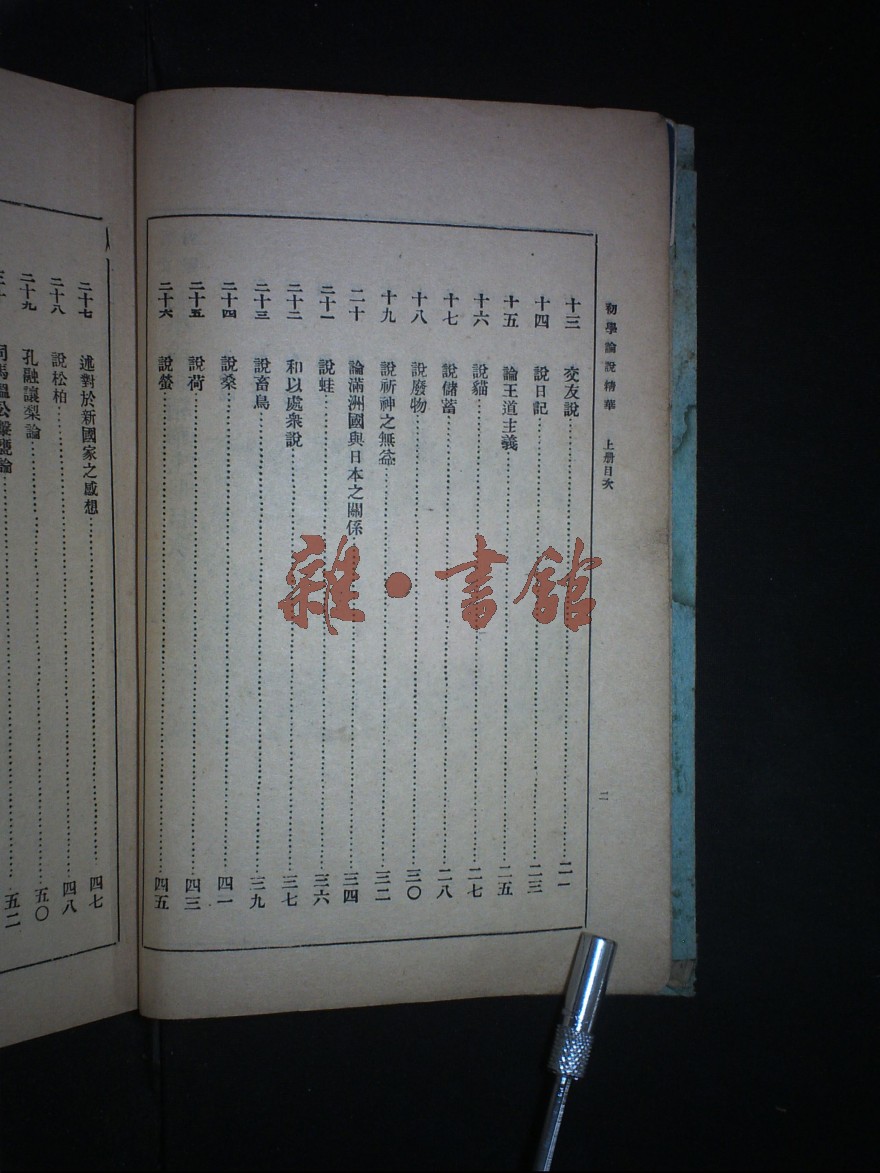 初學論說精華　上册目次
二
十三　交友說……二一
十四　說日記……二三
十五　論王道主義……二五
十六　說貓……二七
十七　說儲蓄……二八
十八　說廢物……三〇
十九　說祈神之無益……三二
二十　論滿洲國與日本之關係……三四
二十一　說蛙……三六
二十二　和以處衆說……三七
二十三　說畜鳥……三九
二十四　說桑……四一
二十五　說荷……四三
二十六　說螢……四五
二十七　述對於新國家之感想……四七
二十八　說松柏……四八
二十九　孔融讓梨論……五〇
三十　司馬溫公擊甕論……五二
雜·書館